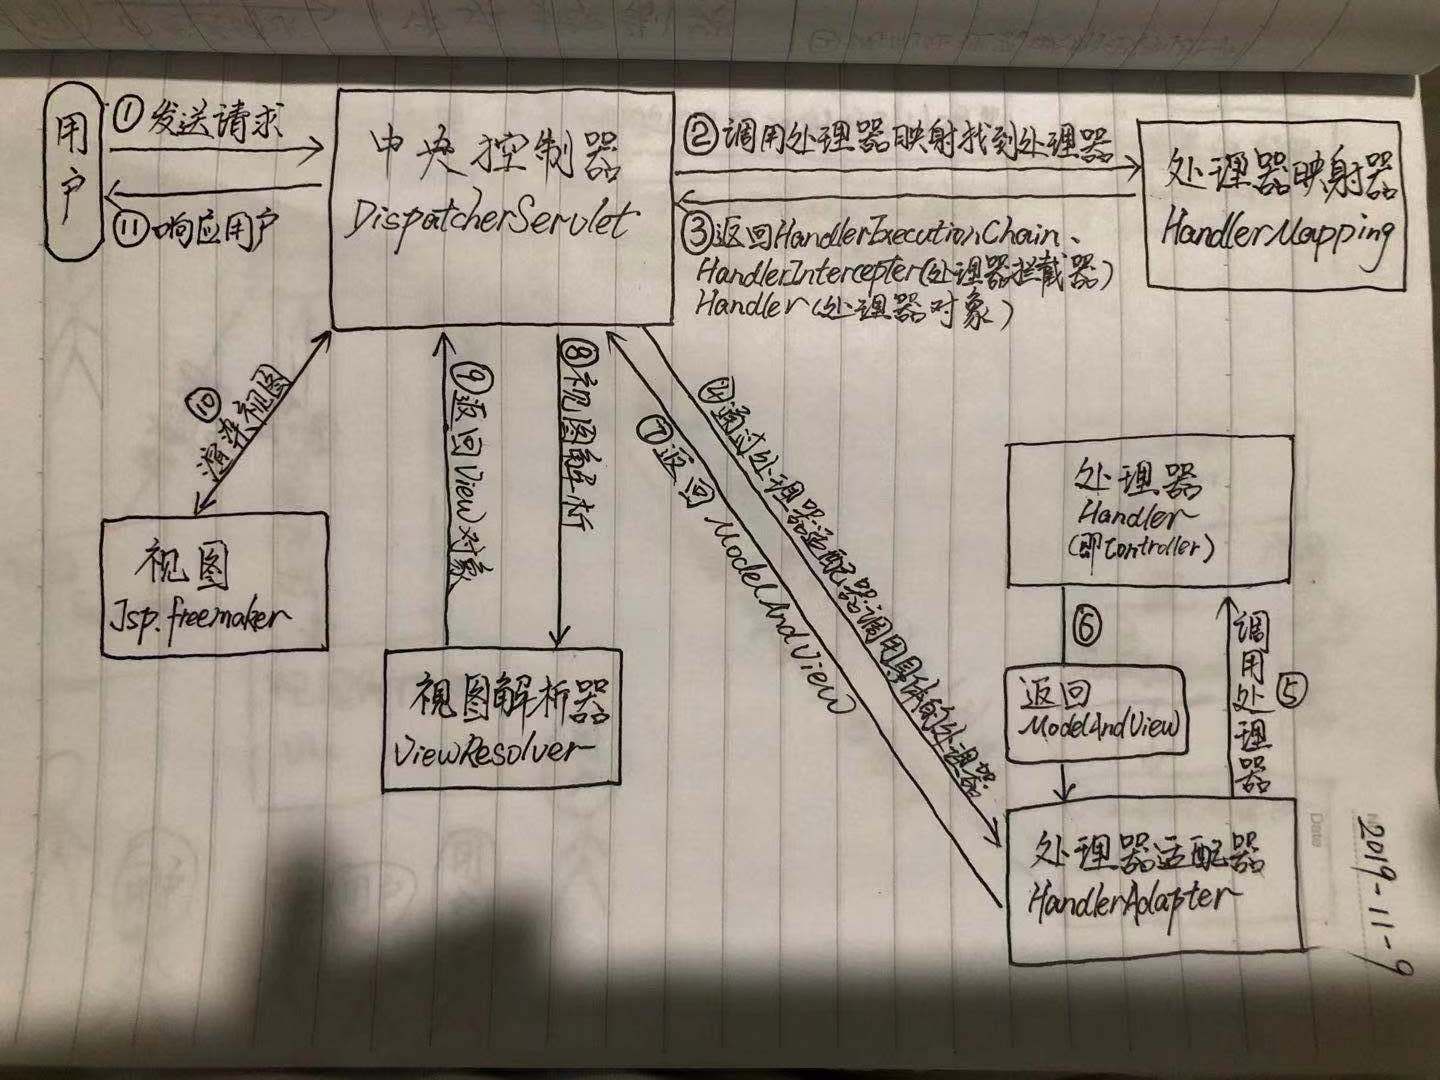 用户
①发送请求
⑪响应用户
中央控制器
DispatcherServlet
②调用处理器映射找到处理器
③返回HandlerExecutionChain、
HandlerIntercepter(处理器拦截器)
Handler(处理器对象)
处理器映射器
HandlerMapping
⑩渲染视图
⑨返回View对象
⑧视图解析
④通过处理器适配器调用具体的处理器
⑦返回ModelAndView
处理器
Handler
(即Controller)
视图
Jsp.freemaker
⑥
返回
ModelAndView
调用处理器
⑤
视图解析器
ViewResolver
处理器适配器
HandlerAdapter
Date
2019-11-9